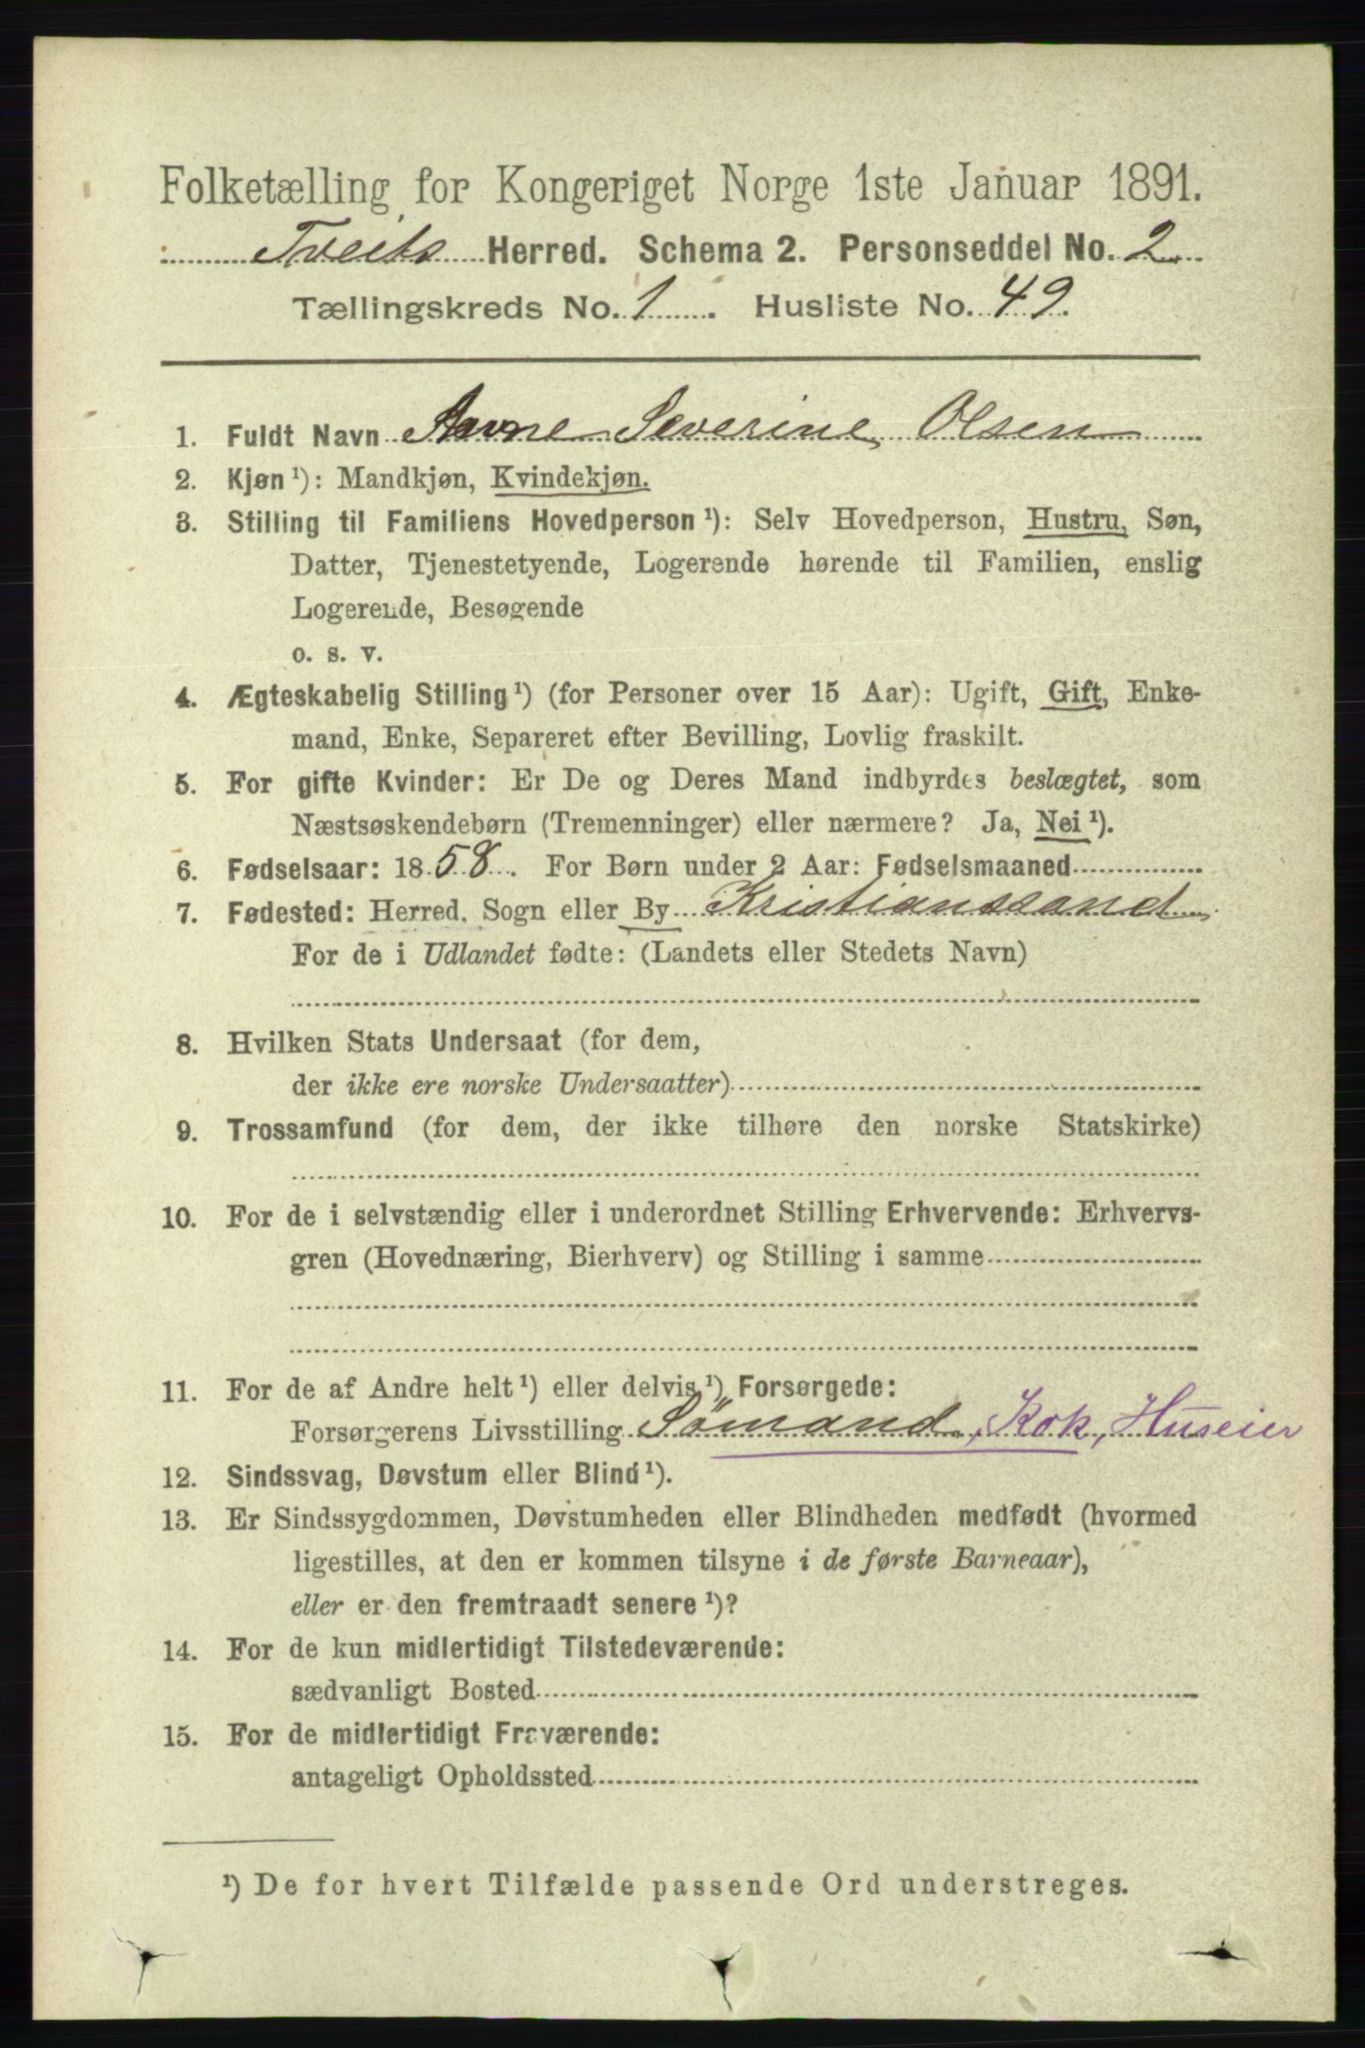 Folketælling for Kongeriget Norge 1ste Januar 1891.
Tveits Herred. Schema 2. Personseddel No. 2
Tællingskreds No. 1. Husliste No. 49.
1. Fuldt Navn Severine Olsen
2. Kjøn ¹): Mandkjøn, Kvindekjøn.
3. Stilling til Familiens Hovedperson ¹): Selv Hovedperson, Hustru, Søn,
Datter, Tjenestetyende, Logerende hørende til Familien, enslig
Logerende, Besøgende
o. s. v.
4. Ægteskabelig Stilling ¹) (for Personer over 15 Aar): Ugift, Gift, Enke-
mand, Enke, Separeret efter Bevilling, Lovlig fraskilt.
5. For gifte Kvinder: Er De og Deres Mand indbyrdes beslægtet, som
Næstsøskendebørn (Tremenninger) eller nærmere? Ja, Nei ¹).
6. Fødselsaar: 1858. For Børn under 2 Aar: Fødselsmaaned
7. Fødested: Herred, Sogn eller By Kristianssand
For de i Udlandet fødte: (Landets eller Stedets Navn)
8. Hvilken Stats Undersaat (for dem,
der ikke ere norske Undersaatter)
9. Trossamfund (for dem, der ikke tilhøre den norske Statskirke)
10. For de i selvstændig eller i underordnet Stilling Erhvervende: Erhvervs-
gren (Hovednæring, Bierhverv) og Stilling i samme
11. For de af Andre helt ¹) eller delvis ¹) Forsørgede:
Forsørgerens Livsstilling Sømand, Kok, Huseier
12. Sindssvag, Døvstum eller Blind ¹).
13. Er Sindssygdommen, Døvstumheden eller Blindheden medfødt (hvormed
ligestilles, at den er kommen tilsyne i de første Barneaar),
eller er den fremtraadt senere ¹)?
14. For de kun midlertidigt Tilstedeværende:
sædvanligt Bosted
15. For de midlertidigt Fraværende:
antageligt Opholdssted
¹) De for hvert Tilfælde passende Ord understreges.